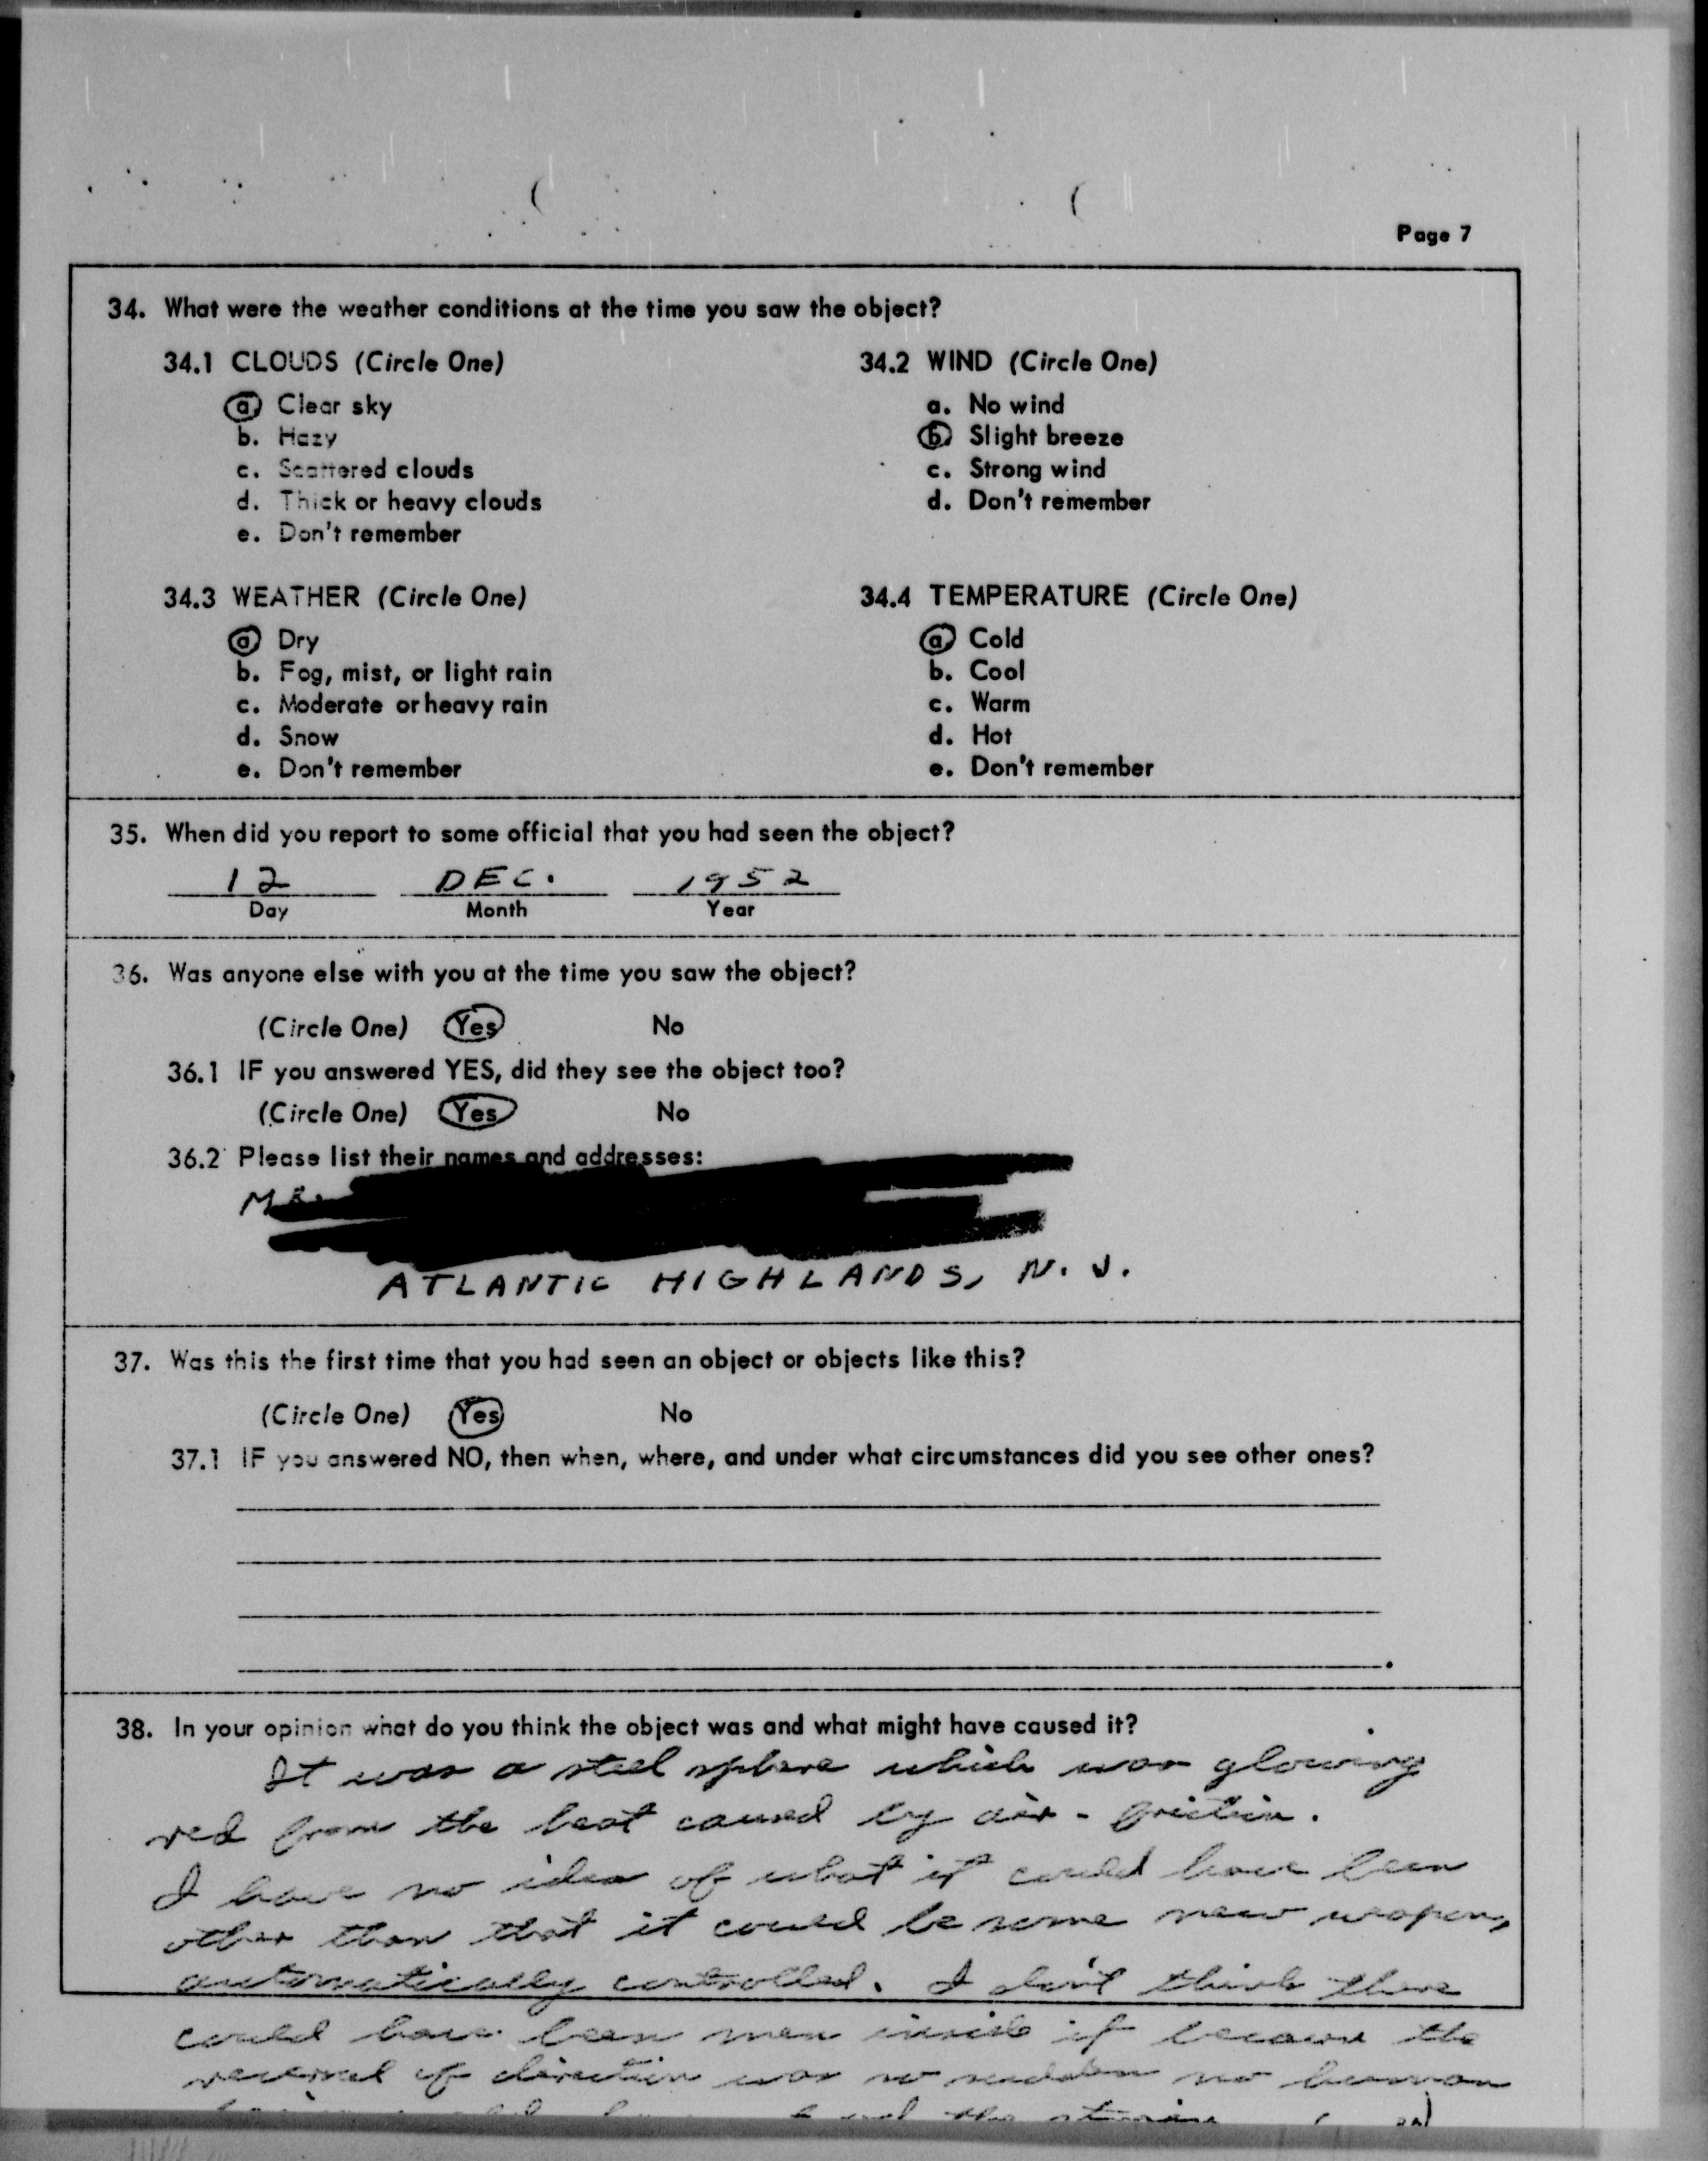 Page 7
34. What were the weather conditions at the time you saw the object?
34.1 CLOUDS (Circle One)
a. Clear sky
b. Hazy
c. Scattered clouds
d. Thick or heavy clouds
e. Don't remember
34.2 WIND (Circle One)
a. No wind
b. Slight breeze
c. Strong wind
d. Don't remember
34.3 WEATHER (Circle One)
a. Dry
b. Fog, mist, or light rain
c. Moderate or heavy rain
d. Snow
e. Don't remember
34.4 TEMPERATURE (Circle One)
a. Cold
b. Cool
c. Warm
d. Hot
e. Don't remember
35. When did you report to some official that you had seen the object?
12 DEC. 1952
Day Month Year
36. Was anyone else with you at the time you saw the object?
(Circle One) Yes No
36.1 IF you answered YES, did they see the object too?
(Circle One) Yes No
36.2 Please list their names and addresses:
MR.
ATLANTIC HIGHLANDS, N. J.
37. Was this the first time that you had seen an object or objects like this?
(Circle One) Yes No
37.1 IF you answered NO, then when, where, and under what circumstances did you see other ones?
38. In your opinion what do you think the object was and what might have caused it?
It was a steel sphere which was glowing
red from the heat caused by air-friction.
I have no idea of what it could have been
other than that it could be some new weapon,
automatically controlled. I don't think there
could have been men inside it because the
reversal of direction was so sudden no human